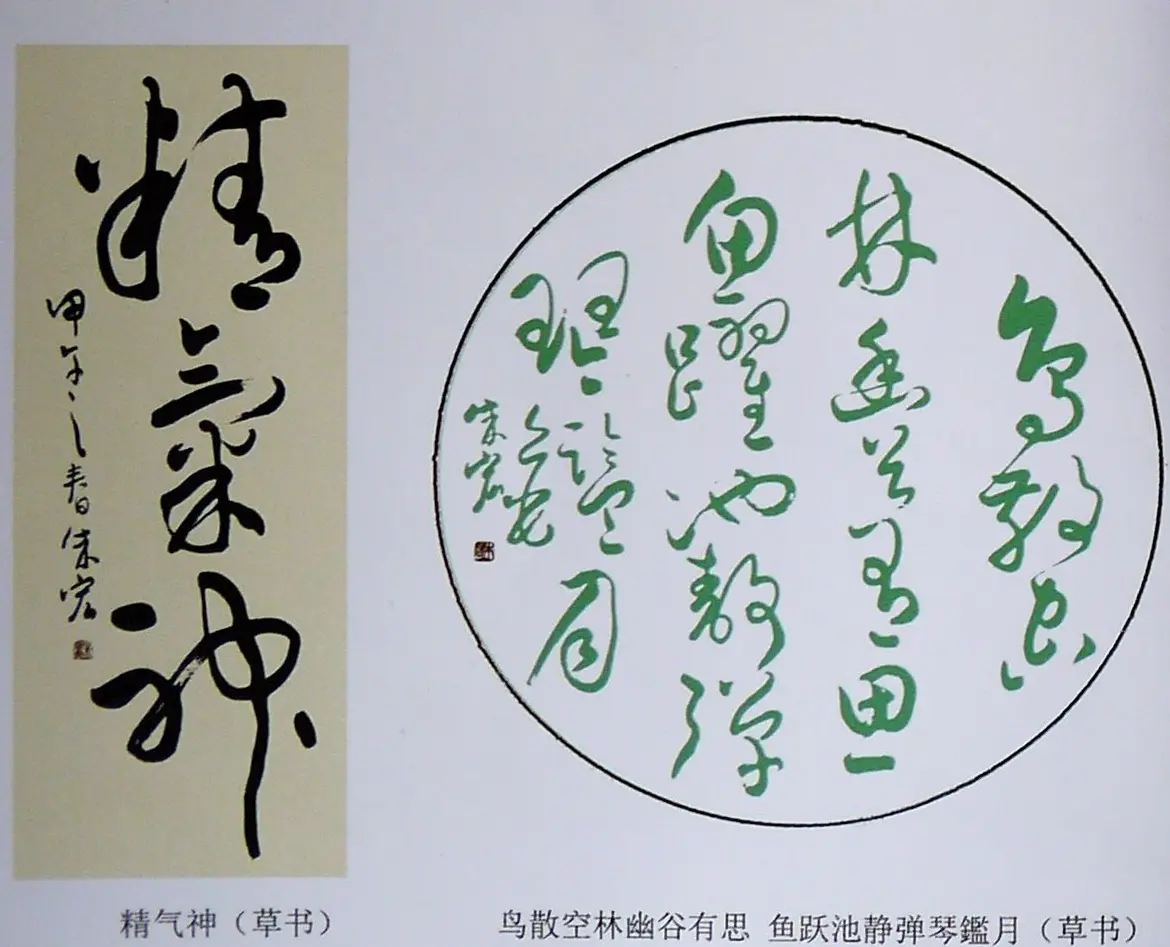 精氣神
甲午之春朱宏
精气神（草书）
鳥散空
林幽谷有思
魚躍池靜彈
琴鑑月
朱宏
鸟散空林幽谷有思 鱼跃池静弹琴鑑月（草书）